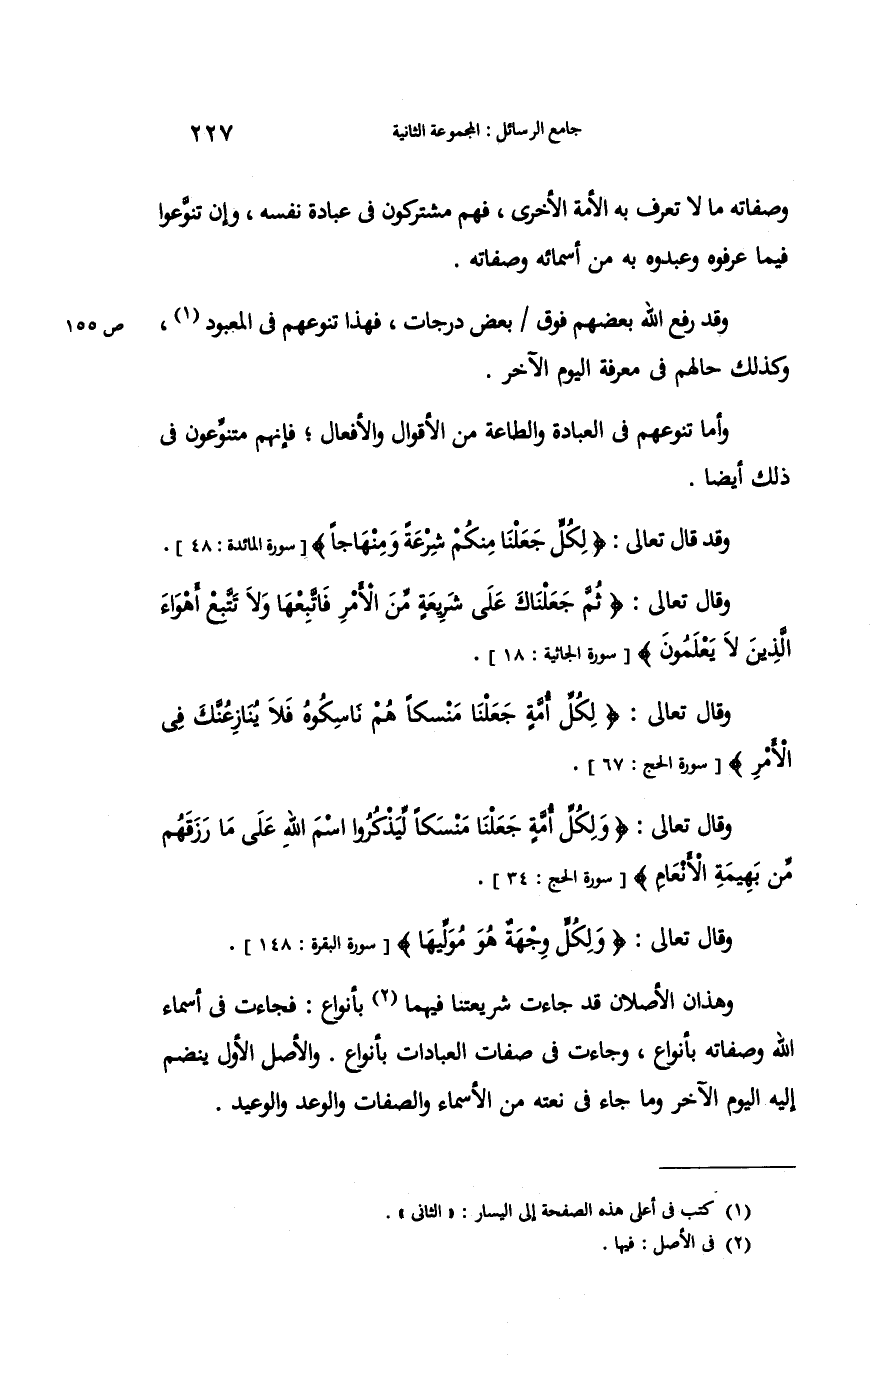 جامع الرسائل : المجموعة الثانية ٢٢٧
وصفاته ما لا تعرف به الأمة الأخرى ، فهم مشتركون فى عبادة نفسه ، وإن تنوَّعوا
فيما عرفوه وعبدوه به من أسمائه وصفاته .
وقد رفع الله بعضهم فوق / بعض درجات ، فهذا تنوعهم فى المعبود (١) ، ص ١٥٥
وكذلك حالهم فى معرفة اليوم الآخر .
وأما تنوعهم فى العبادة والطاعة من الأقوال والأفعال ؛ فإنهم متنوِّعون فى
ذلك أيضا .
وقد قال تعالى : ﴿ لِكُلٍّ جَعَلْنَا مِنكُمْ شِرْعَةً وَمِنْهَاجاً ﴾ [ سورة المائدة : ٤٨ ] .
وقال تعالى : ﴿ ثُمَّ جَعَلْنَاكَ عَلَى شَرِيعَةٍ مِّنَ الْأَمْرِ فَاتَّبِعْهَا وَلاَ تَتَّبِعْ أَهْوَاءَ
الَّذِينَ لاَ يَعْلَمُونَ ﴾ [ سورة الجاثية : ١٨ ] .
وقال تعالى : ﴿ لِكُلِّ أُمَّةٍ جَعَلْنَا مَنْسكاً هُمْ نَاسِكُوهُ فَلاَ يُنَازِعُنَّكَ فِى
الْأَمْرِ ﴾ [ سورة الحج : ٦٧ ] .
وقال تعالى : ﴿ وَلِكُلِّ أُمَّةٍ جَعَلْنَا مَنْسَكاً لِّيَذْكُرُوا اسْمَ اللهِ عَلَى مَا رَزَقَهُم
مِّن بَهِيمَةِ الْأَنْعَامِ ﴾ [ سورة الحج : ٣٤ ] .
وقال تعالى : ﴿ وَلِكُلٍّ وِجْهَةٌ هُوَ مُوَلِّيهَا ﴾ [ سورة البقرة : ١٤٨ ] .
وهذان الأصلان قد جاءت شريعتنا فيهما (٢) بأنواع : فجاءت فى أسماء
الله وصفاته بأنواع ، وجاءت فى صفات العبادات بأنواع . والأصل الأول ينضم
إليه اليوم الآخر وما جاء فى نعته من الأسماء والصفات والوعد والوعيد .
(١) كتب فى أعلى هذه الصفحة إلى اليسار : « الثانى » .
(٢) فى الأصل : فيها .